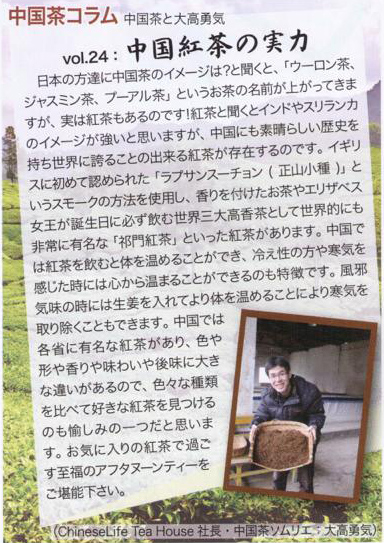 中国茶コラム 中国茶と大高勇気
vol.24：中国紅茶の実力
日本の方達に中国茶のイメージは?と聞くと、「ウーロン茶、
ジャスミン茶、プーアル茶」というお茶の名前が上がってきま
すが、実は紅茶もあるのです!紅茶と聞くとインドやスリランカ
のイメージが強いと思いますが、中国にも素晴らしい歴史を
持ち世界に誇ることの出来る紅茶が存在するのです。イギリ
スに初めて認められた「ラプサンスーチョン(正山小種)」と
いうスモークの方法を使用し、香りを付けたお茶やエリザベス
女王が誕生日に必ず飲む世界三大高香茶として世界的にも
非常に有名な「祁門紅茶」といった紅茶があります。中国で
は紅茶を飲むと体を温めることができ、冷え性の方や寒気を
感じた時には心から温まることができるのも特徴です。風邪
気味の時には生姜を入れてより体を温めることにより寒気を
取り除くこともできます。中国では
各省に有名な紅茶があり、色や
形や香りや味わいや後味に大き
な違いがあるので、色々な種類
を比べて好きな紅茶を見つける
のも愉しみの一つだと思いま
す。お気に入りの紅茶で過ご
す至福のアフタヌーンティーを
ご堪能下さい。
(ChineseLife Tea House 社長・中国茶ソムリエ：大高勇気)